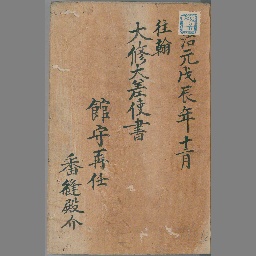 治元戊辰年十一月
往翰
大修大差使書
館守再任
番縫殿介